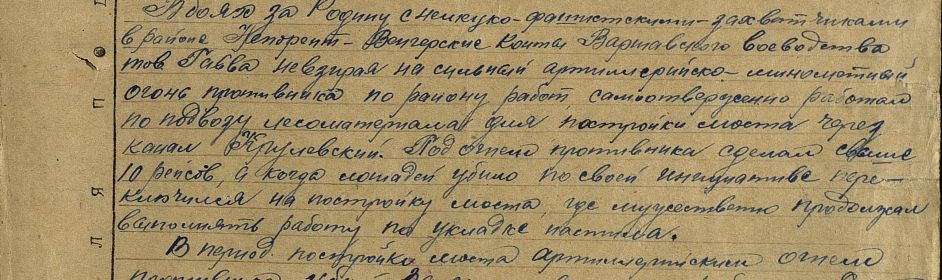 В боях за Родину с немецко-фашистскими-захватчиками
в районе Непорент-ВенгерскиеКонты Варшавского воеводства
тов. Гавва невзирая на сильный артиллерийско-минометный
огонь противника по району работ, самоотверженно работал
по подвозу лесоматериала для постройки моста через
канал Крулевский. Под огнем противника сделал свыше
10 рейсов, а когда лошадей убило по своей инициативе пере-
ключился на постройку моста, где мужественно продолжал
выполнять работу по укладке настила.
В период постройки моста артиллерийским огнем
Л Я П